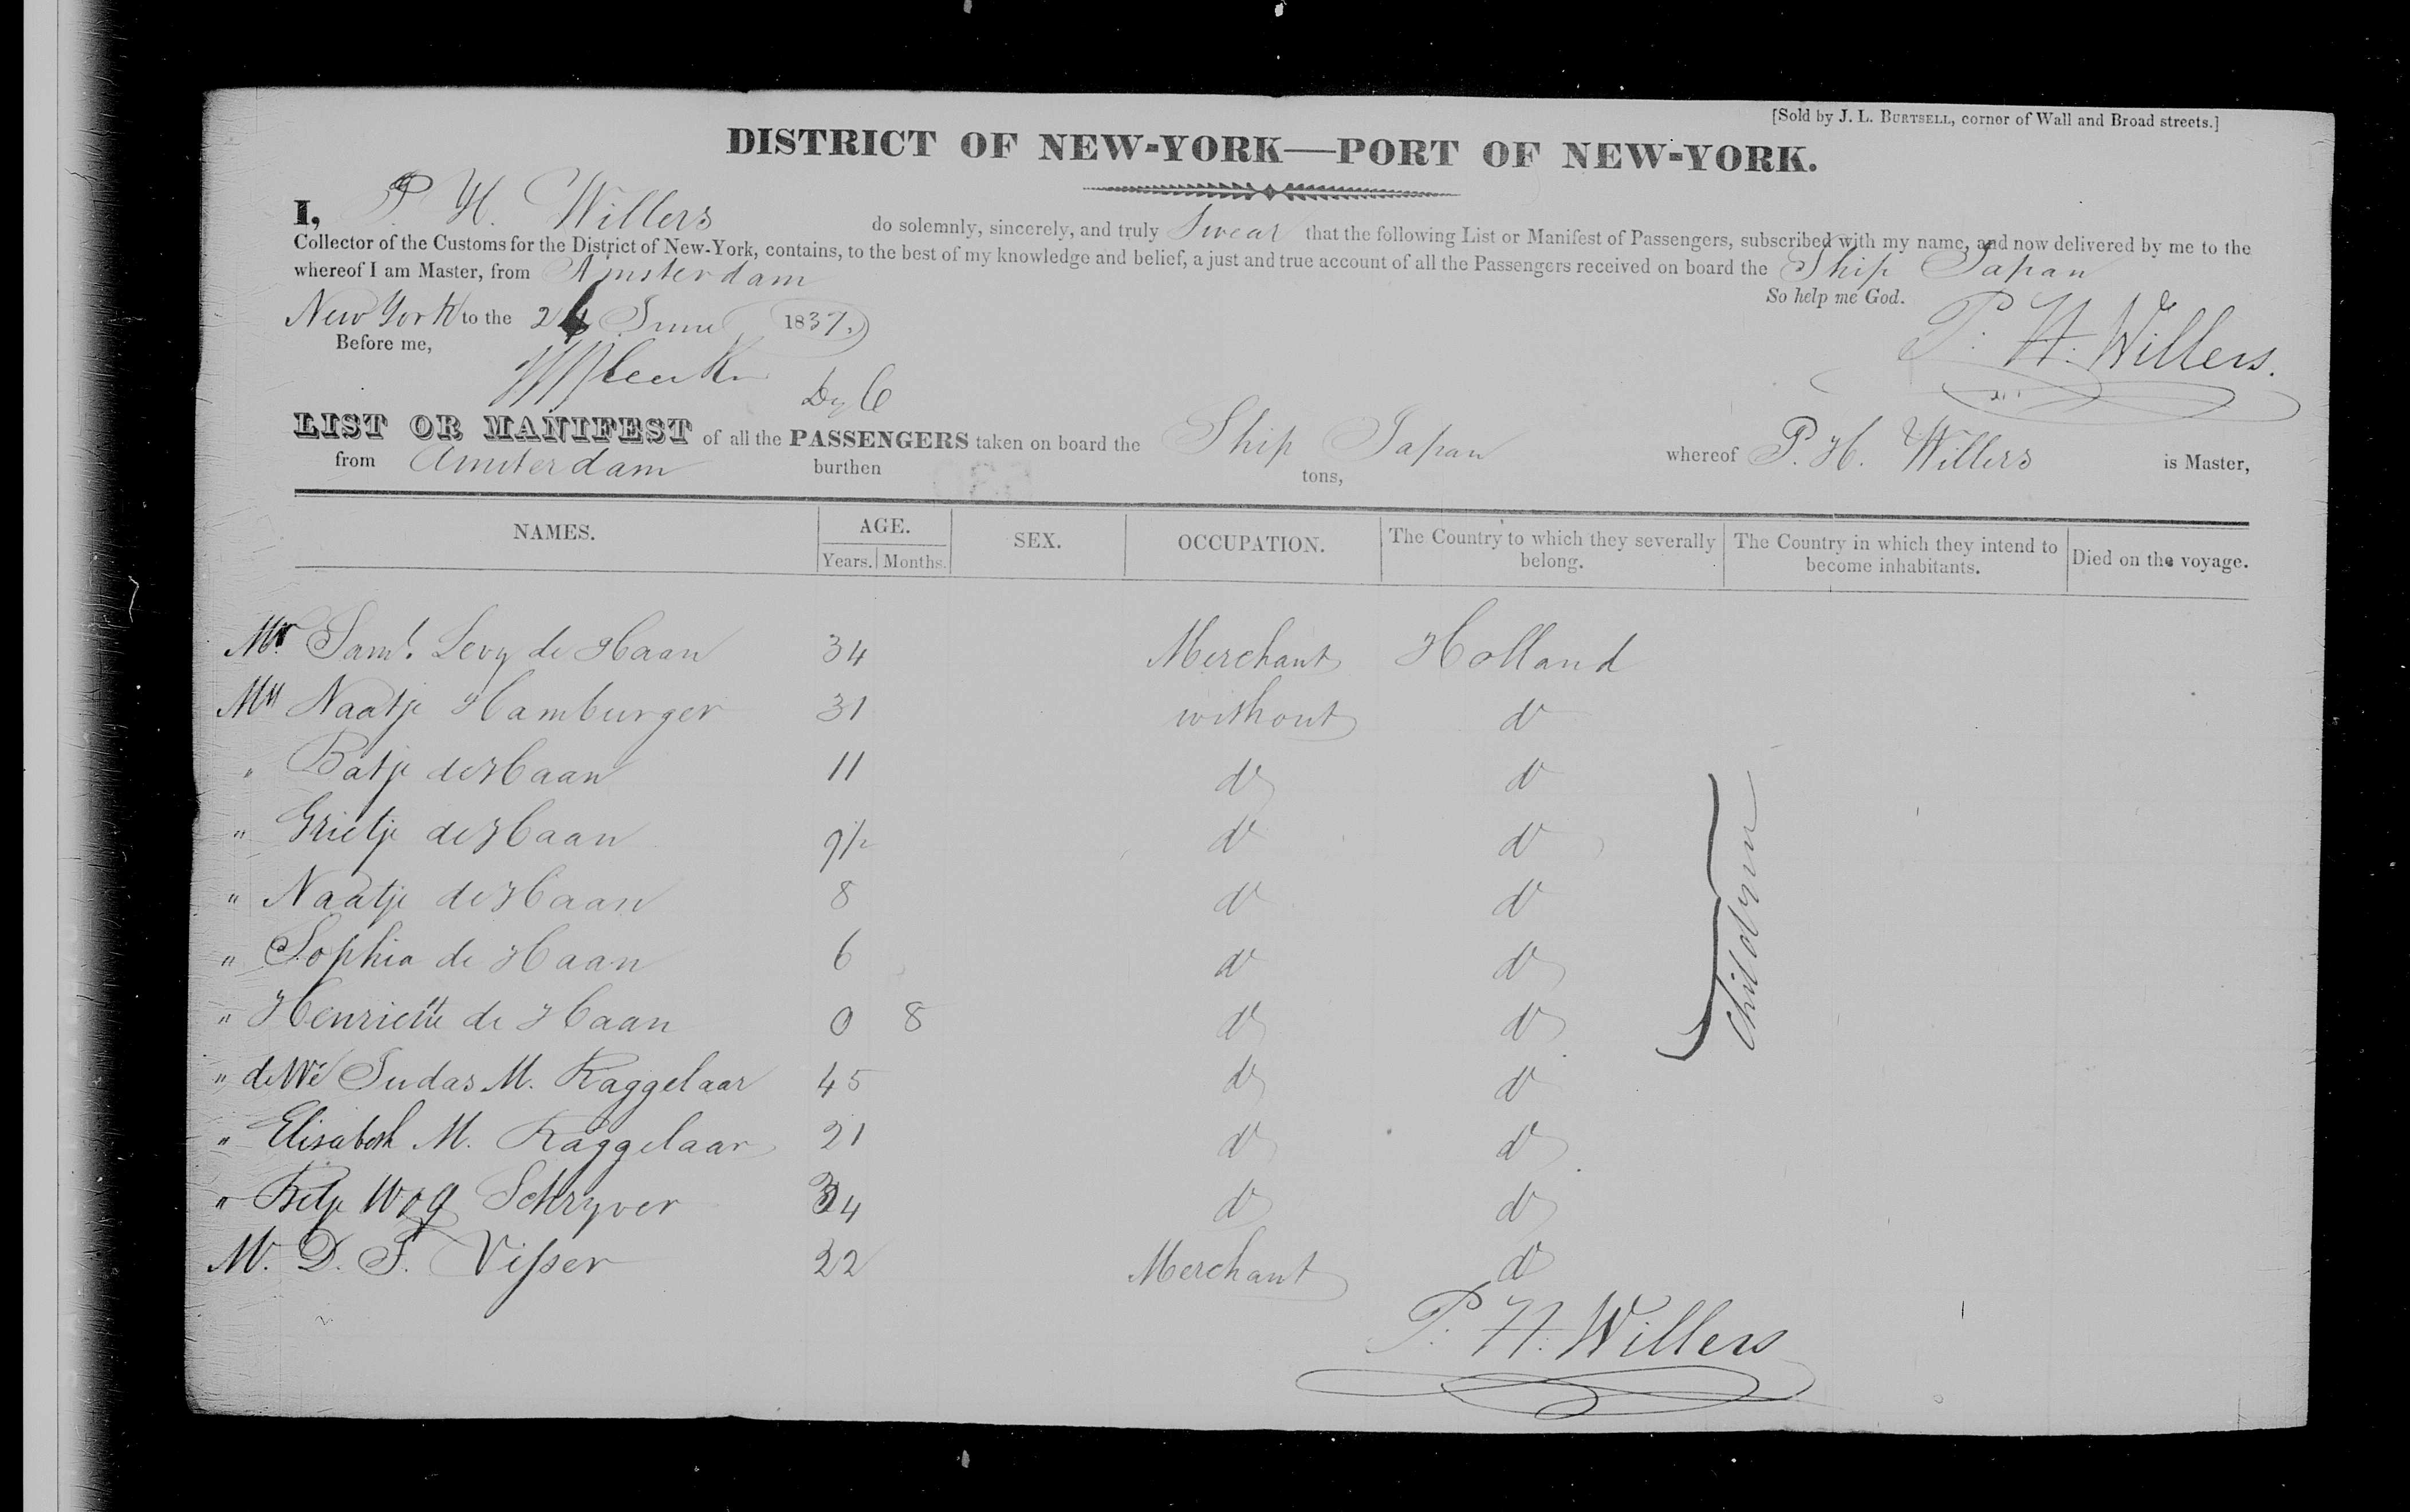 [Sold by J. L. BURTSELL, corner of Wall and Broad streets.]
DISTRICT OF NEW-YORK—PORT OF NEW-YORK.
I, P. H. Willers do solemnly, sincerely, and truly Swear that the following List or Manifest of Passengers, subscribed with my name, and now delivered by me to the
Collector of the Customs for the District of New-York, contains, to the best of my knowledge and belief, a just and true account of all the Passengers received on board the Ship Japan
whereof I am Master, from Amsterdam
So help me God.
New York to the 24 June 1837.
P. H. Willers.
Before me,
Dy C
LIST OR MANIFEST of all the PASSENGERS taken on board the Ship Japan whereof P. H. Willers is Master,
from Amsterdam burthen tons,
NAMES. AGE. SEX. OCCUPATION. The Country to which they severally belong. The Country in which they intend to become inhabitants. Died on the voyage.
Years. Months.
Mr Saml. Levy de Haan 34 Merchant Holland
Naatje Hamburger 31 without do
" Batje de Haan 11 do do
" Grietje de Haan 9½ do do
" Naatje de Haan 8 do do
" Sophia de Haan 6 do do
" Henriette de Haan 0 8 do do
Children
" de We Judas M. Kaggelaar 45 do do
" Elisabeth M. Kaggelaar 21 do do
" Betje Wog Schryver 34 do do
M. D. F. Visser 22 Merchant do
P. H. Willers